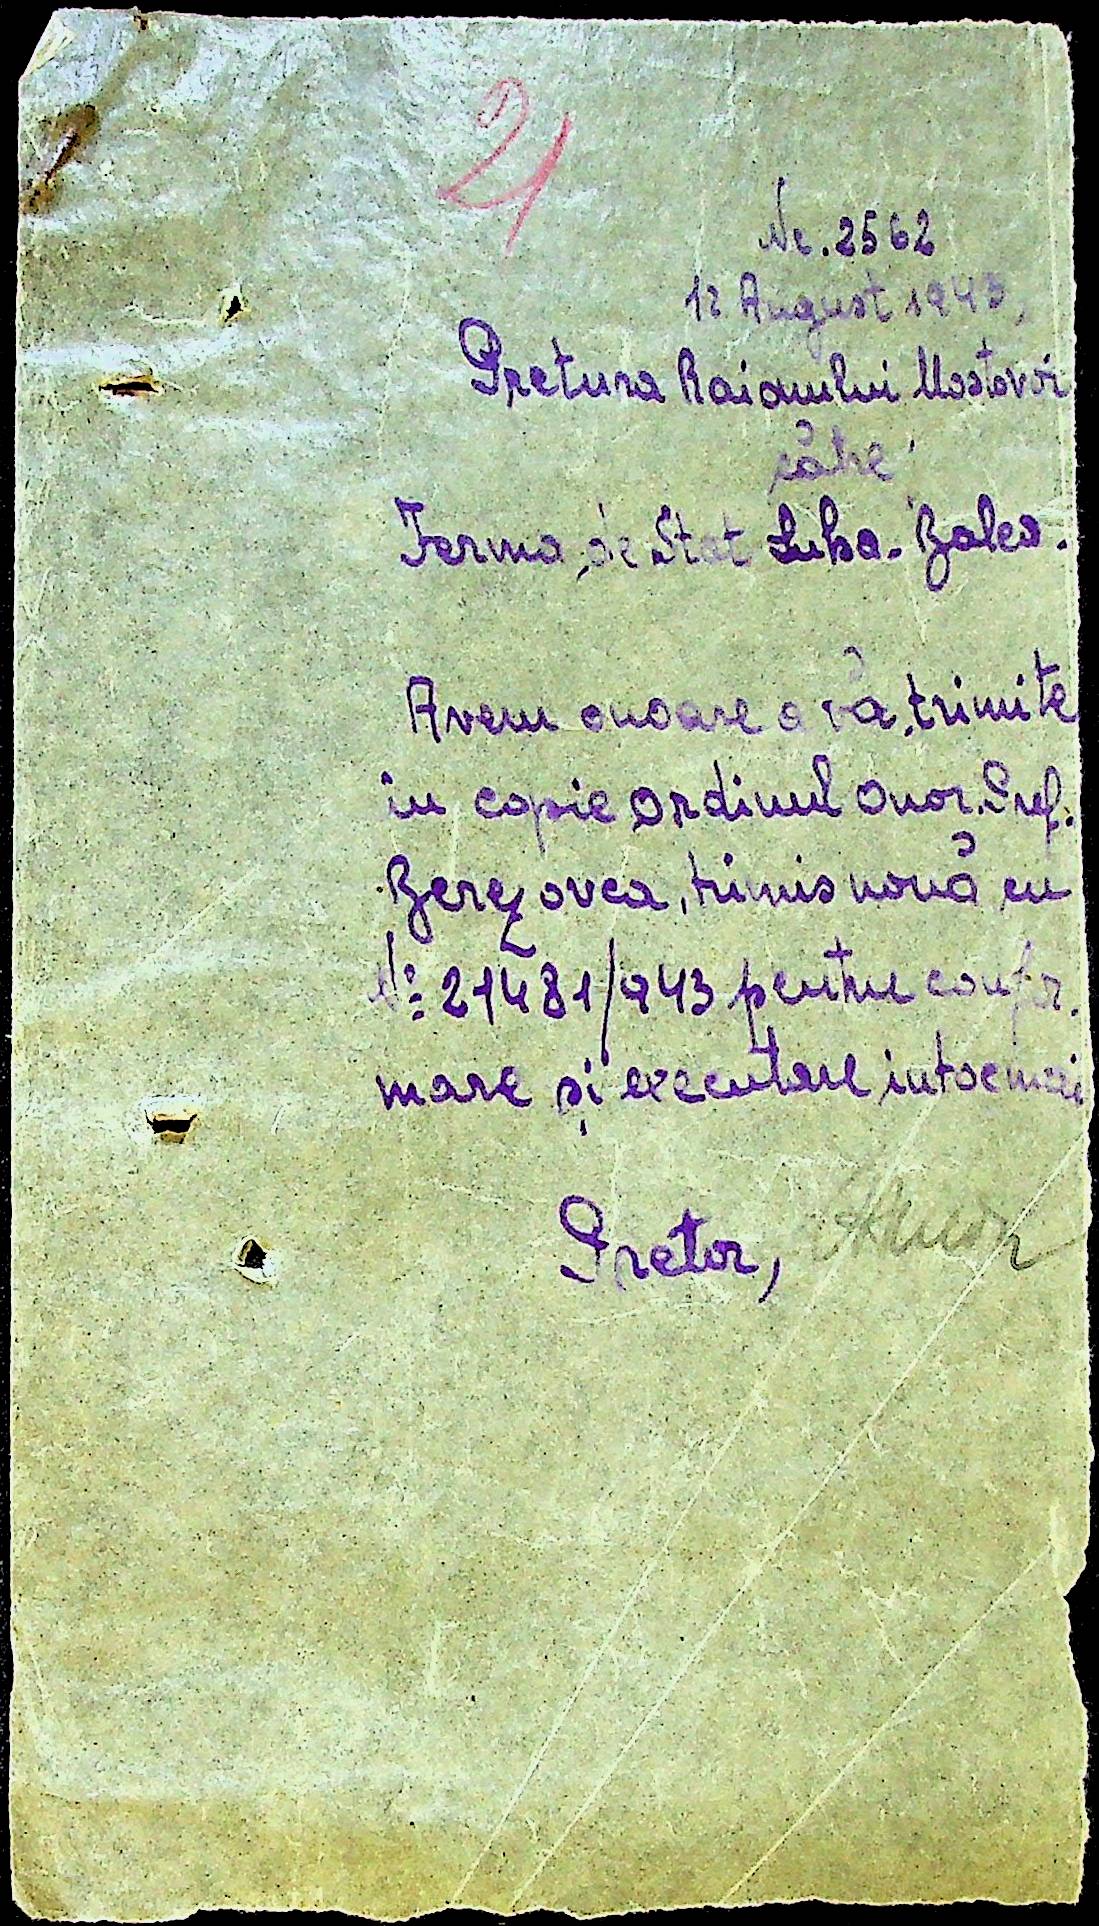 21
Nr. 2562
12 August 1943,
Pretura Raionului Mostovoi
către
Ferma de Stat Suha-Balca.
Avem onoare a vă trimite
in copie Ordinul Onor. Pref.
Berezovca, trimis nouă cu
№ 21481/943 pentru confor.
mare și executare intocmai
Pretor,